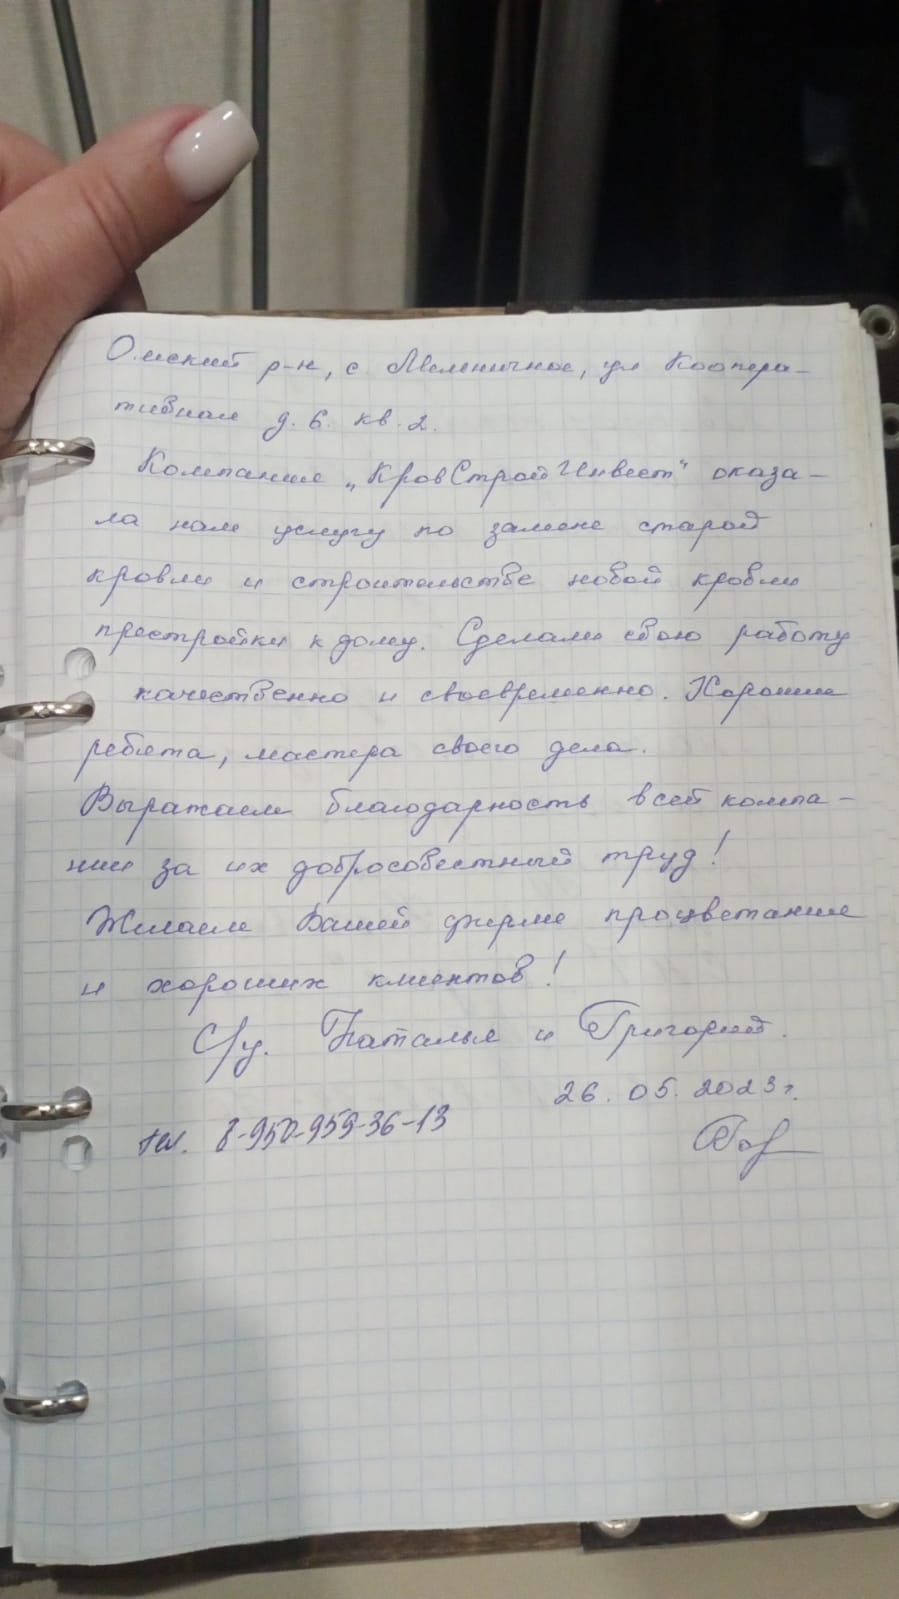 Омский р-н, с. Мельничное, ул Коопера-
тивная д. 6. кв. 2.
Компания „КровСтройИнвест" оказа-
ла нам услугу по замене старой
кровли и строительстве новой кровли
престройки к дому. Сделали свою работу
качественно и своевременно. Хорошие
ребята, мастера своего дела.
Выражаем благодарность всей компа-
нии за их добросовестный труд!
Желаем Вашей фирме процветание
и хороших клиентов!
С/у. Наталья и Григорий.
26.05.2023г.
тел. 8-950-959-36-13